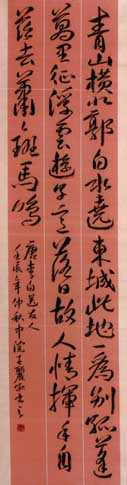 青山橫北郭白水遶東城此地一為別孤蓬
萬里征浮雲遊子意落日故人情揮手自
茲去蕭〻班馬鳴
唐李白送友人
壬辰年仲秋中浣